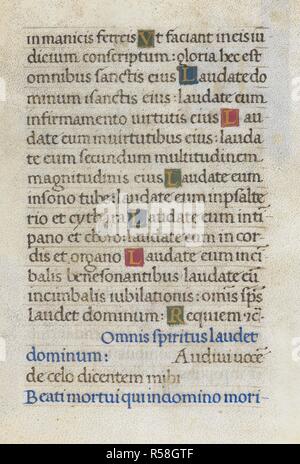 in manicis ferreis Vt faciant in eis iu
dicium conscriptum: gloria hec est
omnibus sanctis eius Laudate do
minum i sanctis eius: laudate eum
in firmamento virtutis eius La
udate eum i uirtutibus eius: lauda
te eum secundum multitudinem
magnitudinis eius Laudate eum
in sono tube: laudate eum in psalte
rio et cythara Laudate eum in ti
pano et choro: laudate eum in cor
dis et organo Laudate eum in ci
balis benesonantibus: laudate eum
in cimbalis iubilationis: omis sps
laudet dominum: Requiem
Omnis spiritus laudet
dominum: Audiui uoce
de celo dicentem mihi
Beati mortui qui in domino mori-
alamy
Image ID: R58GTF
www.alamy.com